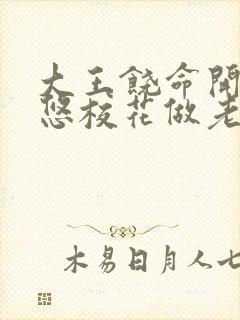 大王饶命開
悠校花做老
木易日月人七